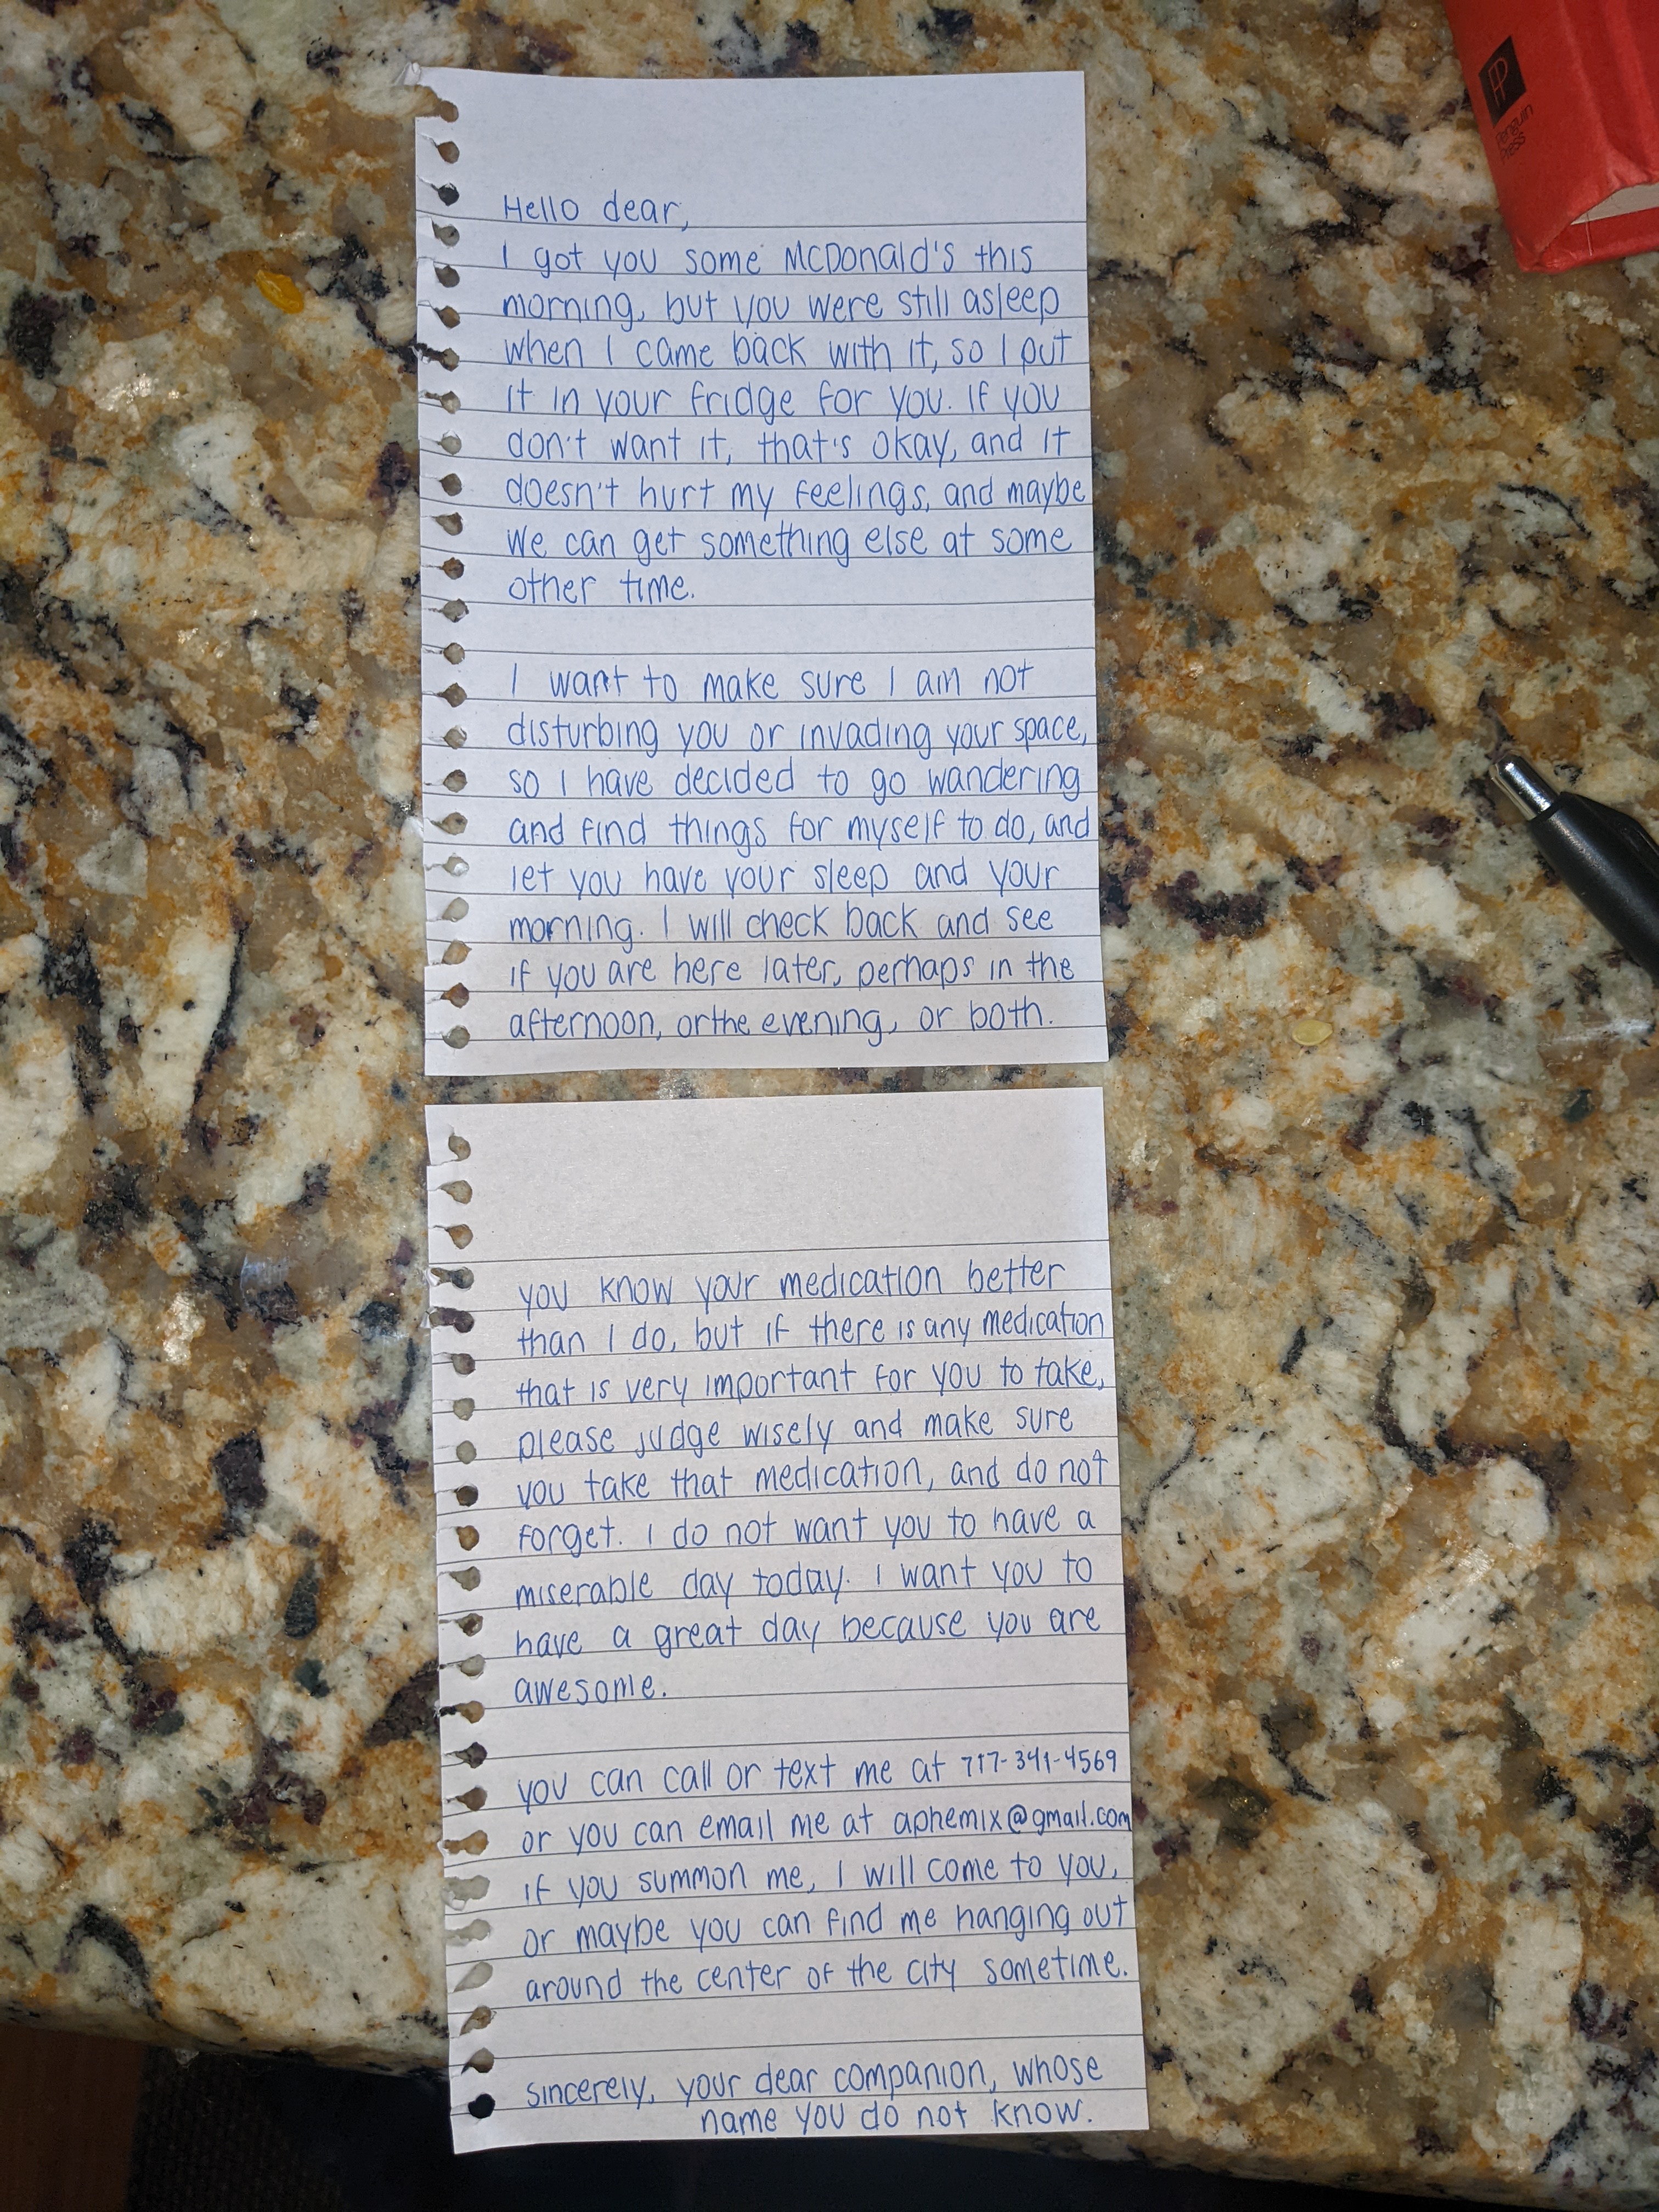 Penguin
Press
Hello dear,
I got you some McDonald's this
morning, but you were still asleep
when I came back with it, so I put
it in your fridge for you. If you
don't want it, that's okay, and it
doesn't hurt my feelings, and maybe
we can get something else at some
other time.
I want to make sure I am not
disturbing you or invading your space,
so I have decided to go wandering
and find things for myself to do, and
let you have your sleep and your
morning. I will check back and see
if you are here later, perhaps in the
afternoon, or the evening, or both.
you know your medication better
than I do, but if there is any medication
that is very important for you to take,
please judge wisely and make sure
you take that medication, and do not
forget. I do not want you to have a
miserable day today. I want you to
have a great day because you are
awesome.
you can call or text me at 717-341-4569
or you can email me at aphemix@gmail.com
if you summon me, I will come to you,
or maybe you can find me hanging out
around the center of the city sometime.
sincerely, your dear companion, whose
name you do not know.